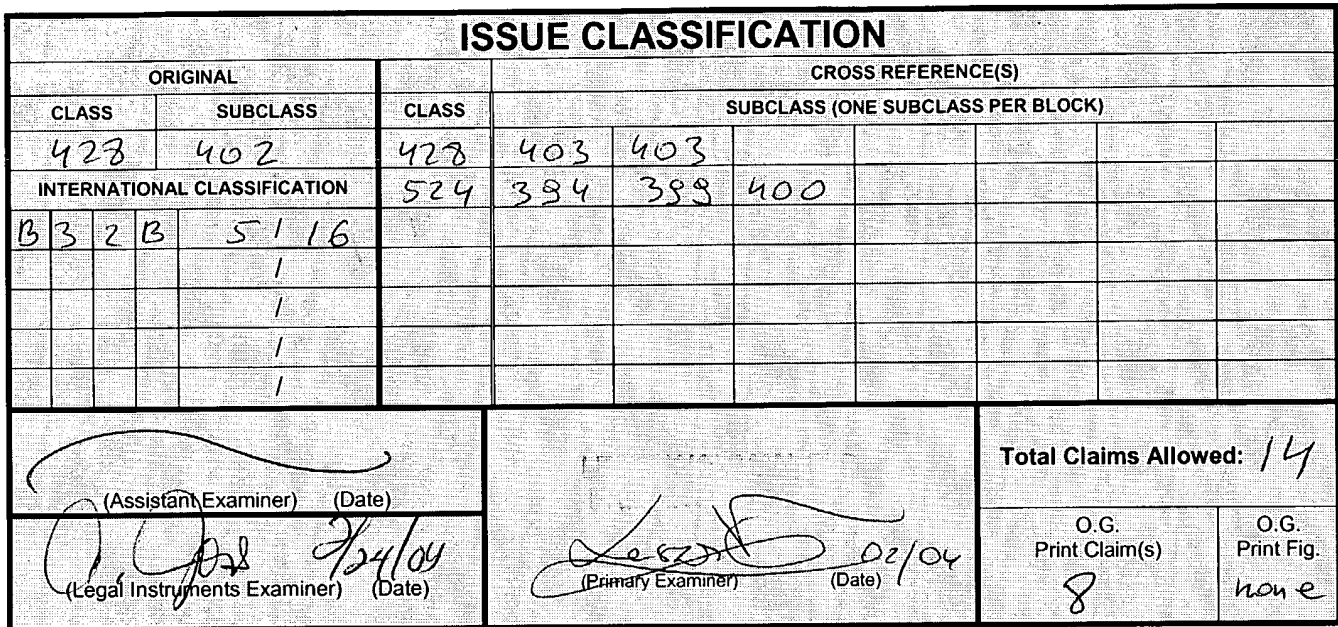 ISSUE CLASSIFICATION
ORIGINAL CROSS REFERENCE(S)
CLASS SUBCLASS CLASS SUBCLASS (ONE SUBCLASS PER BLOCK)
428 402 428 403 403
INTERNATIONAL CLASSIFICATION 524 394 399 400
B 3 2 B 5 / 16
/
/
/
/
Total Claims Allowed: 14
(Assistant Examiner) (Date)
(Legal Instruments Examiner) (Date)
02/04
(Primary Examiner) (Date)
O.G. Print Claim(s)
8
O.G. Print Fig.
none